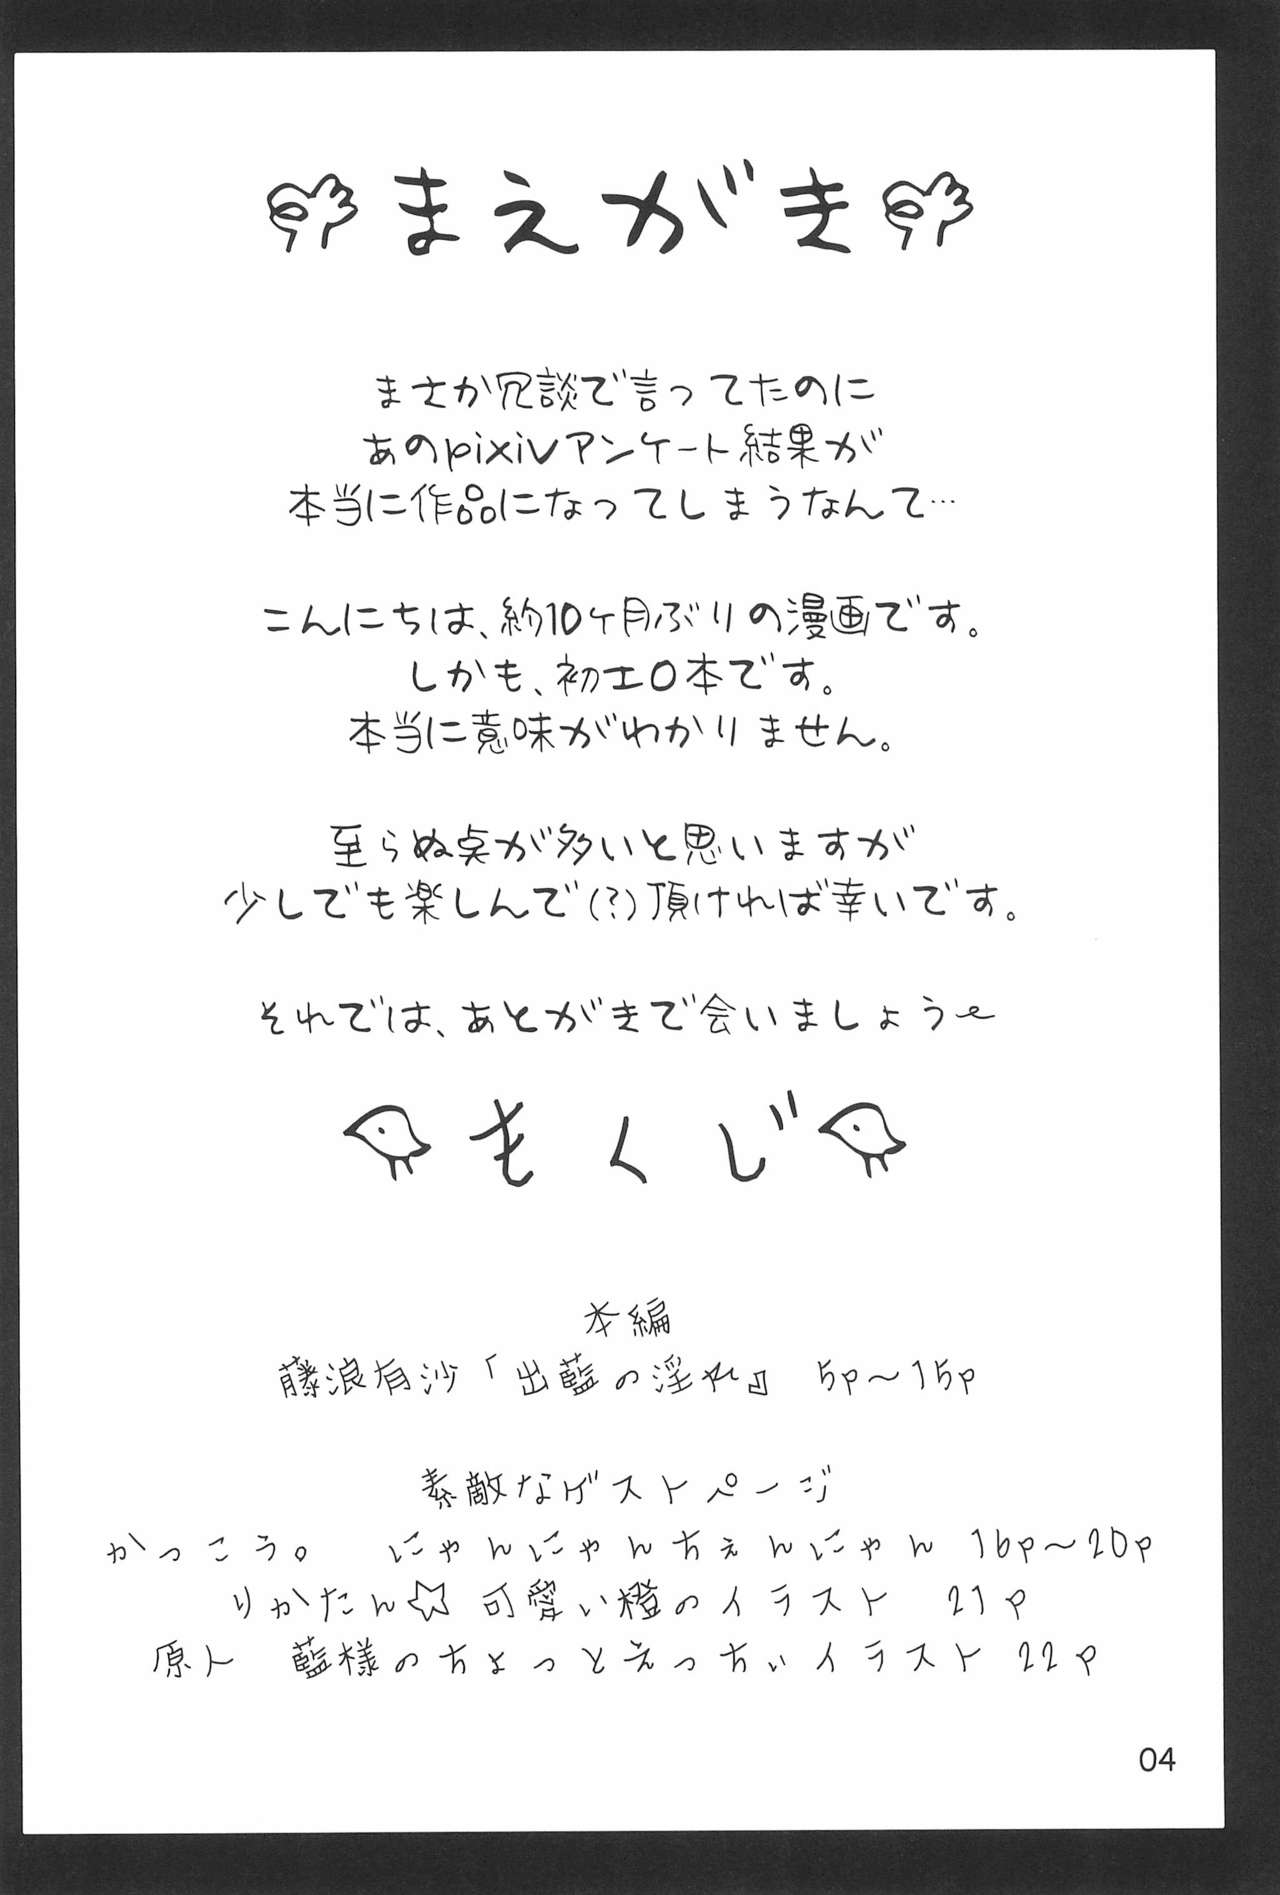 まえがき
まさか冗談で言ってたのに
あのpixivアンケート結果が
本当に作品になってしまうなんて…
こんにちは、約10ヶ月ぶりの漫画です。
しかも、初エロ本です。
本当に意味がわかりません。
至らぬ点が多いと思いますが
少しでも楽しんで(?)頂ければ幸いです。
それでは、あとがきで会いましょう~
もくじ
本編
藤浪有沙「出藍の淫れ」 5p~15p
素敵なゲストページ
かっこう。 にゃんにゃんちぇんにゃん 16p~20p
りかたん☆ 可愛い橙のイラスト 21p
原人 藍様のちょっとえっちぃイラスト 22p
04